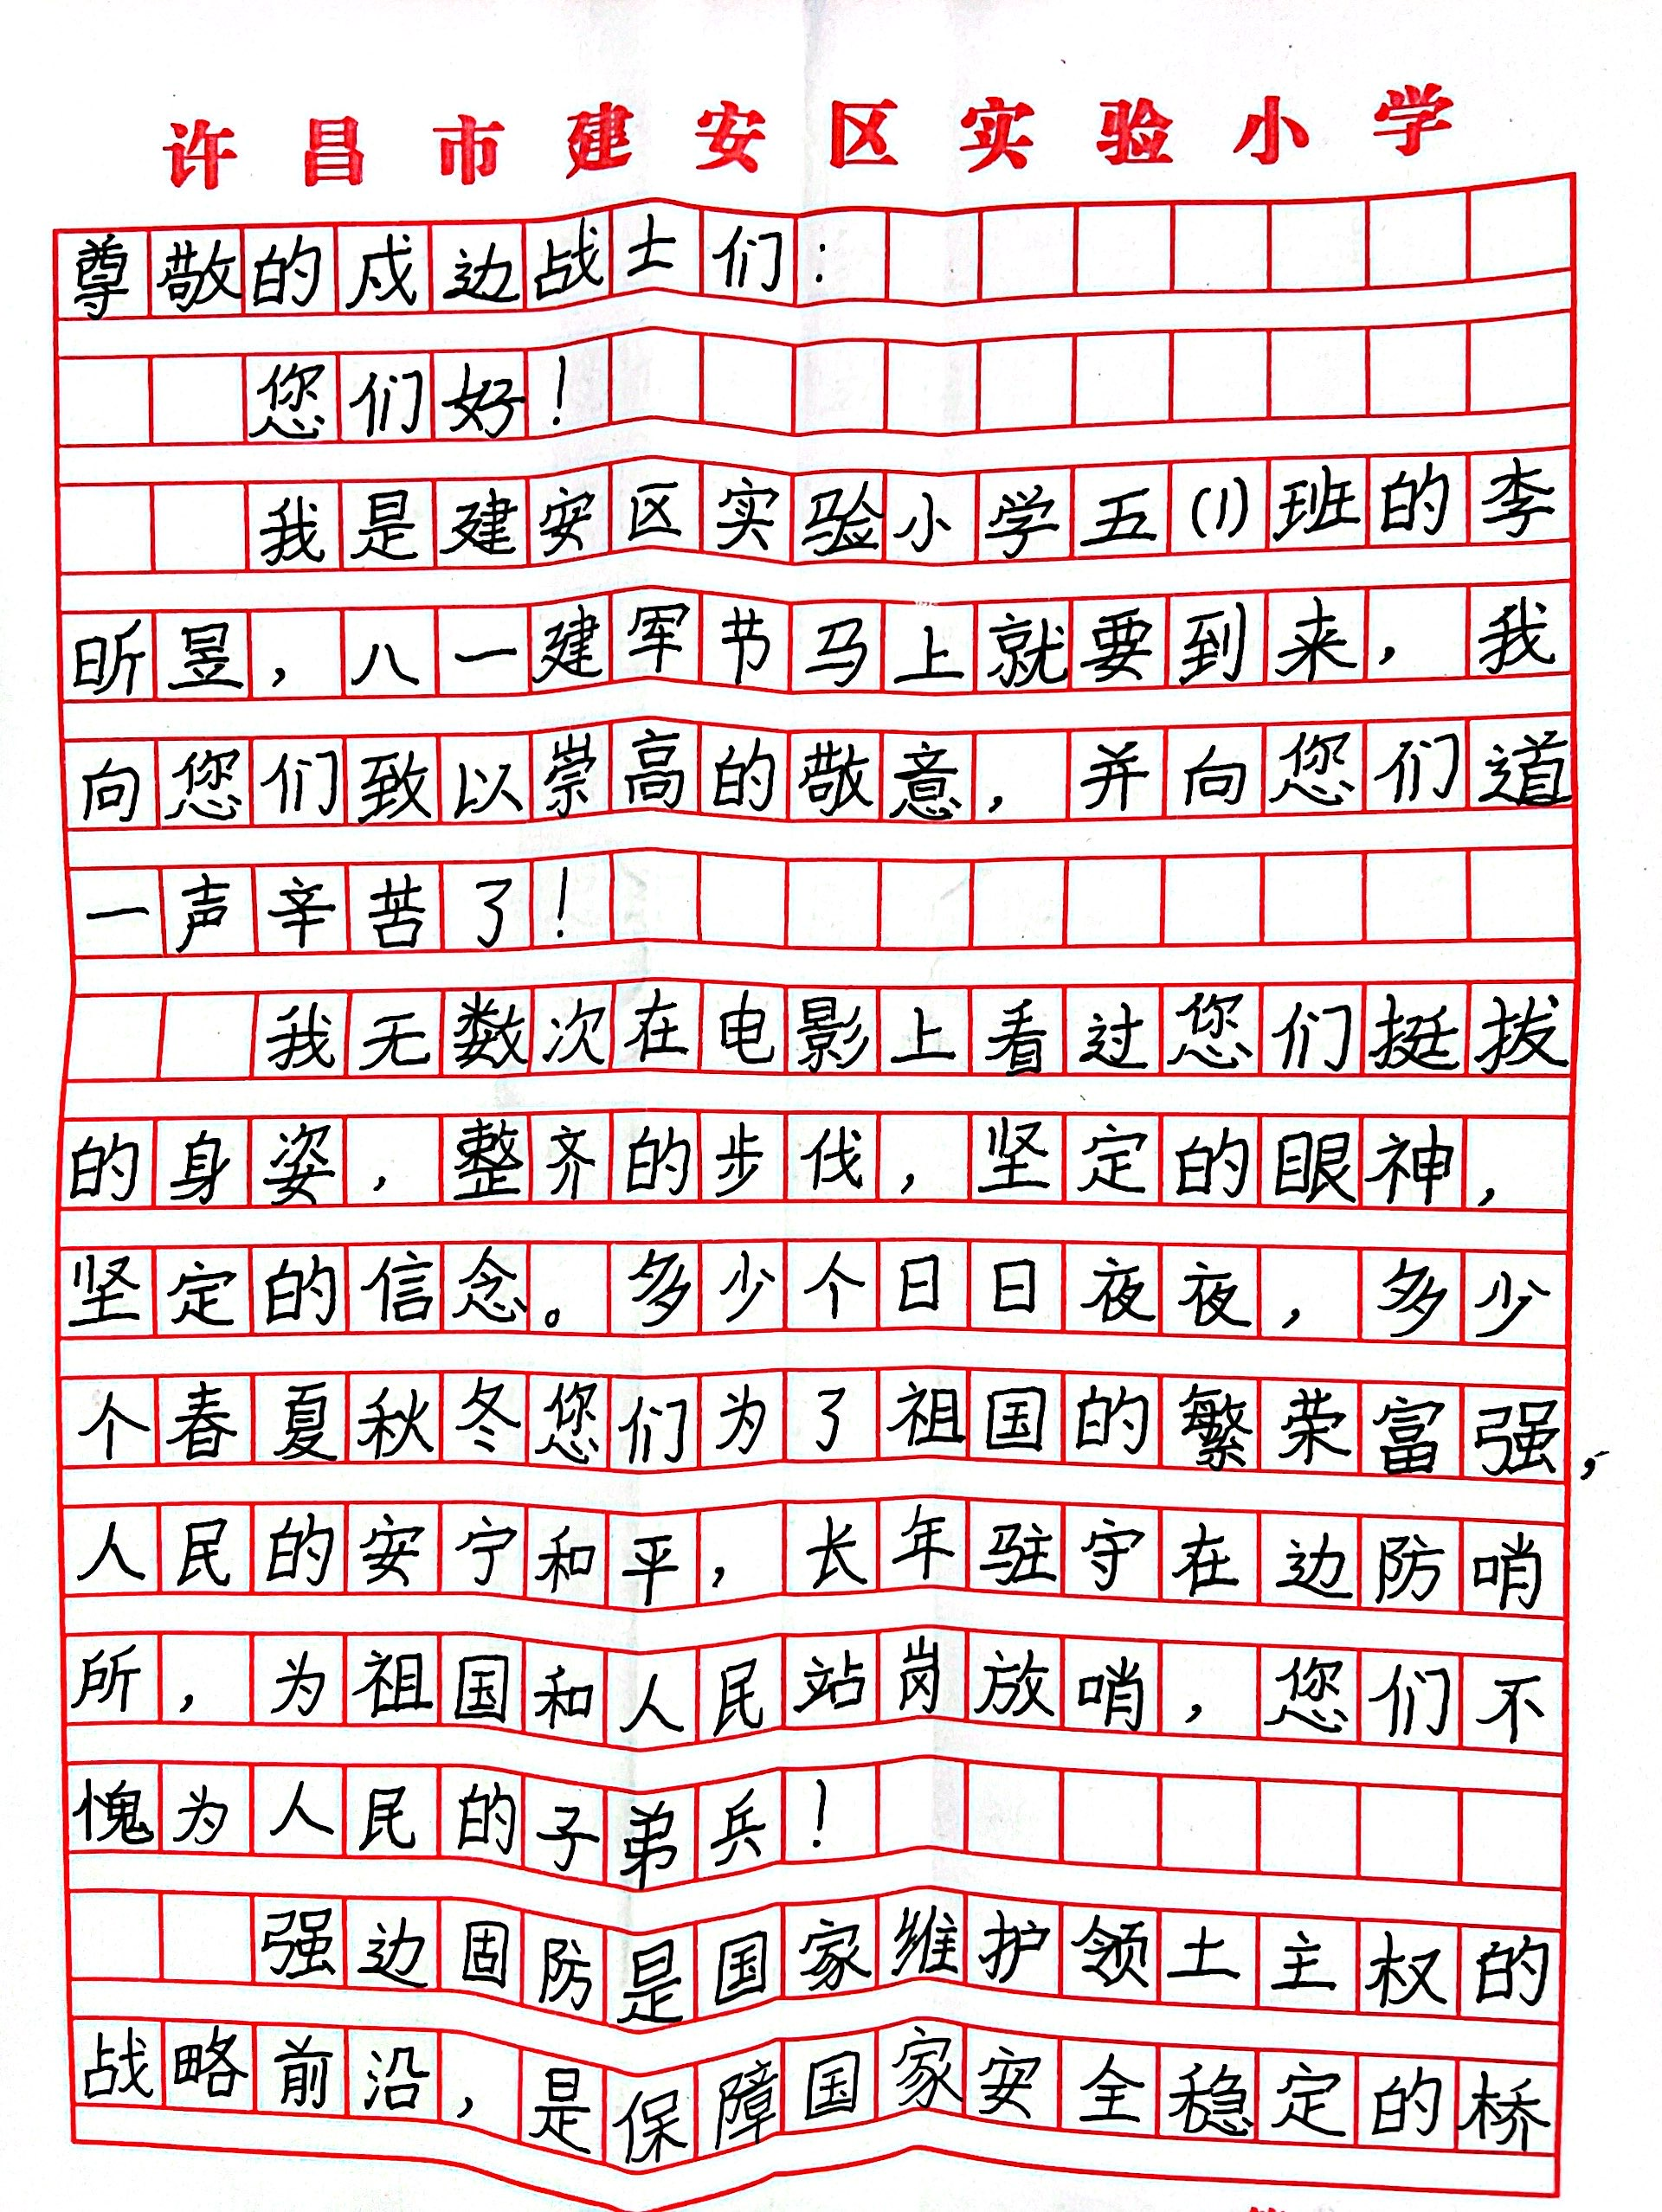 许昌市建安区实验小学
尊敬的戍边战士们：
您们好！
我是建安区实验小学五(1)班的李
昕昱，八一建军节马上就要到来，我
向您们致以崇高的敬意，并向您们道
一声辛苦了！
我无数次在电影上看过您们挺拔
的身姿，整齐的步伐，坚定的眼神，
坚定的信念。多少个日日夜夜，多少
个春夏秋冬您们为了祖国的繁荣富强，
人民的安宁和平，长年驻守在边防哨
所，为祖国和人民站岗放哨，您们不
愧为人民的子弟兵！
强边固防是国家维护领土主权的
战略前沿，是保障国家安全稳定的桥